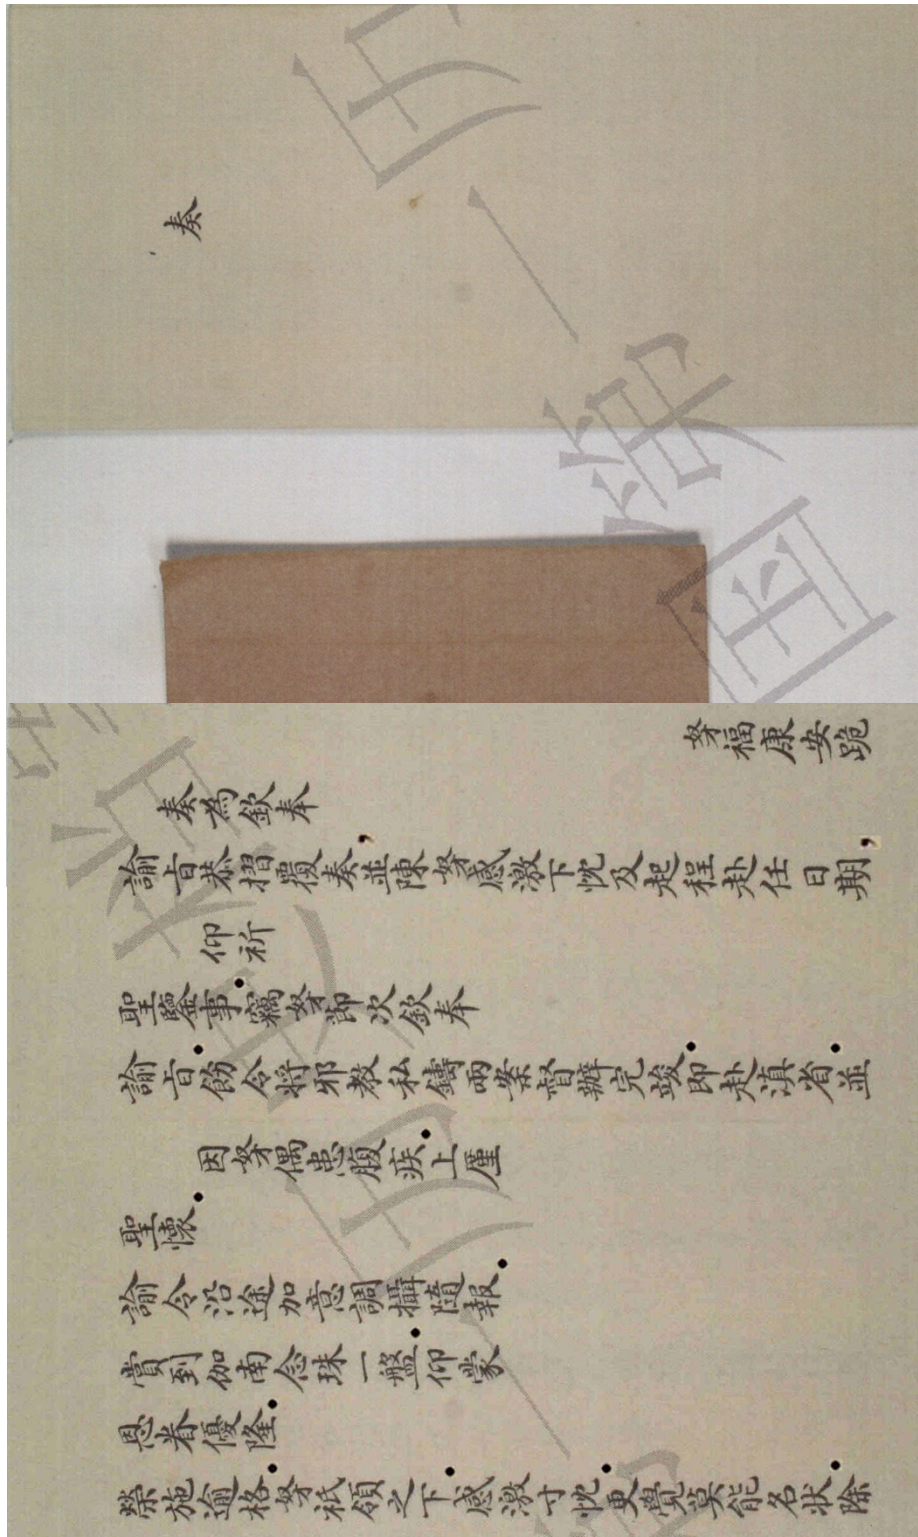 奏
奴才福康安跪
奏為欽奉
諭旨恭摺覆奏並陳奴才感激下忱及起程赴任日期，
仰祈
聖鑒事·竊奴才節次欽奉
諭旨·飭令將邪教私鑄兩案督辦完竣·即赴滇省·並
因奴才偶患腹疾·上廑
聖懷·
諭令沿途加意調攝隨報·
賞到伽南念珠一盤·仰蒙
恩眷優隆·
榮施逾格·奴才祇領之下·感激寸忱·更覺莫能名狀·除